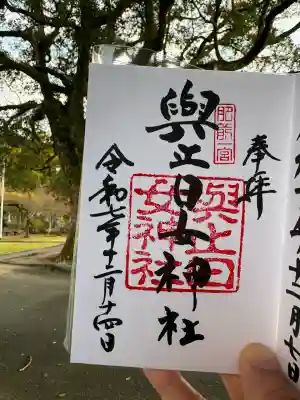 奉拝
肥前一宮
與止日女神社
與止日女神社
令和七年十二月十四日